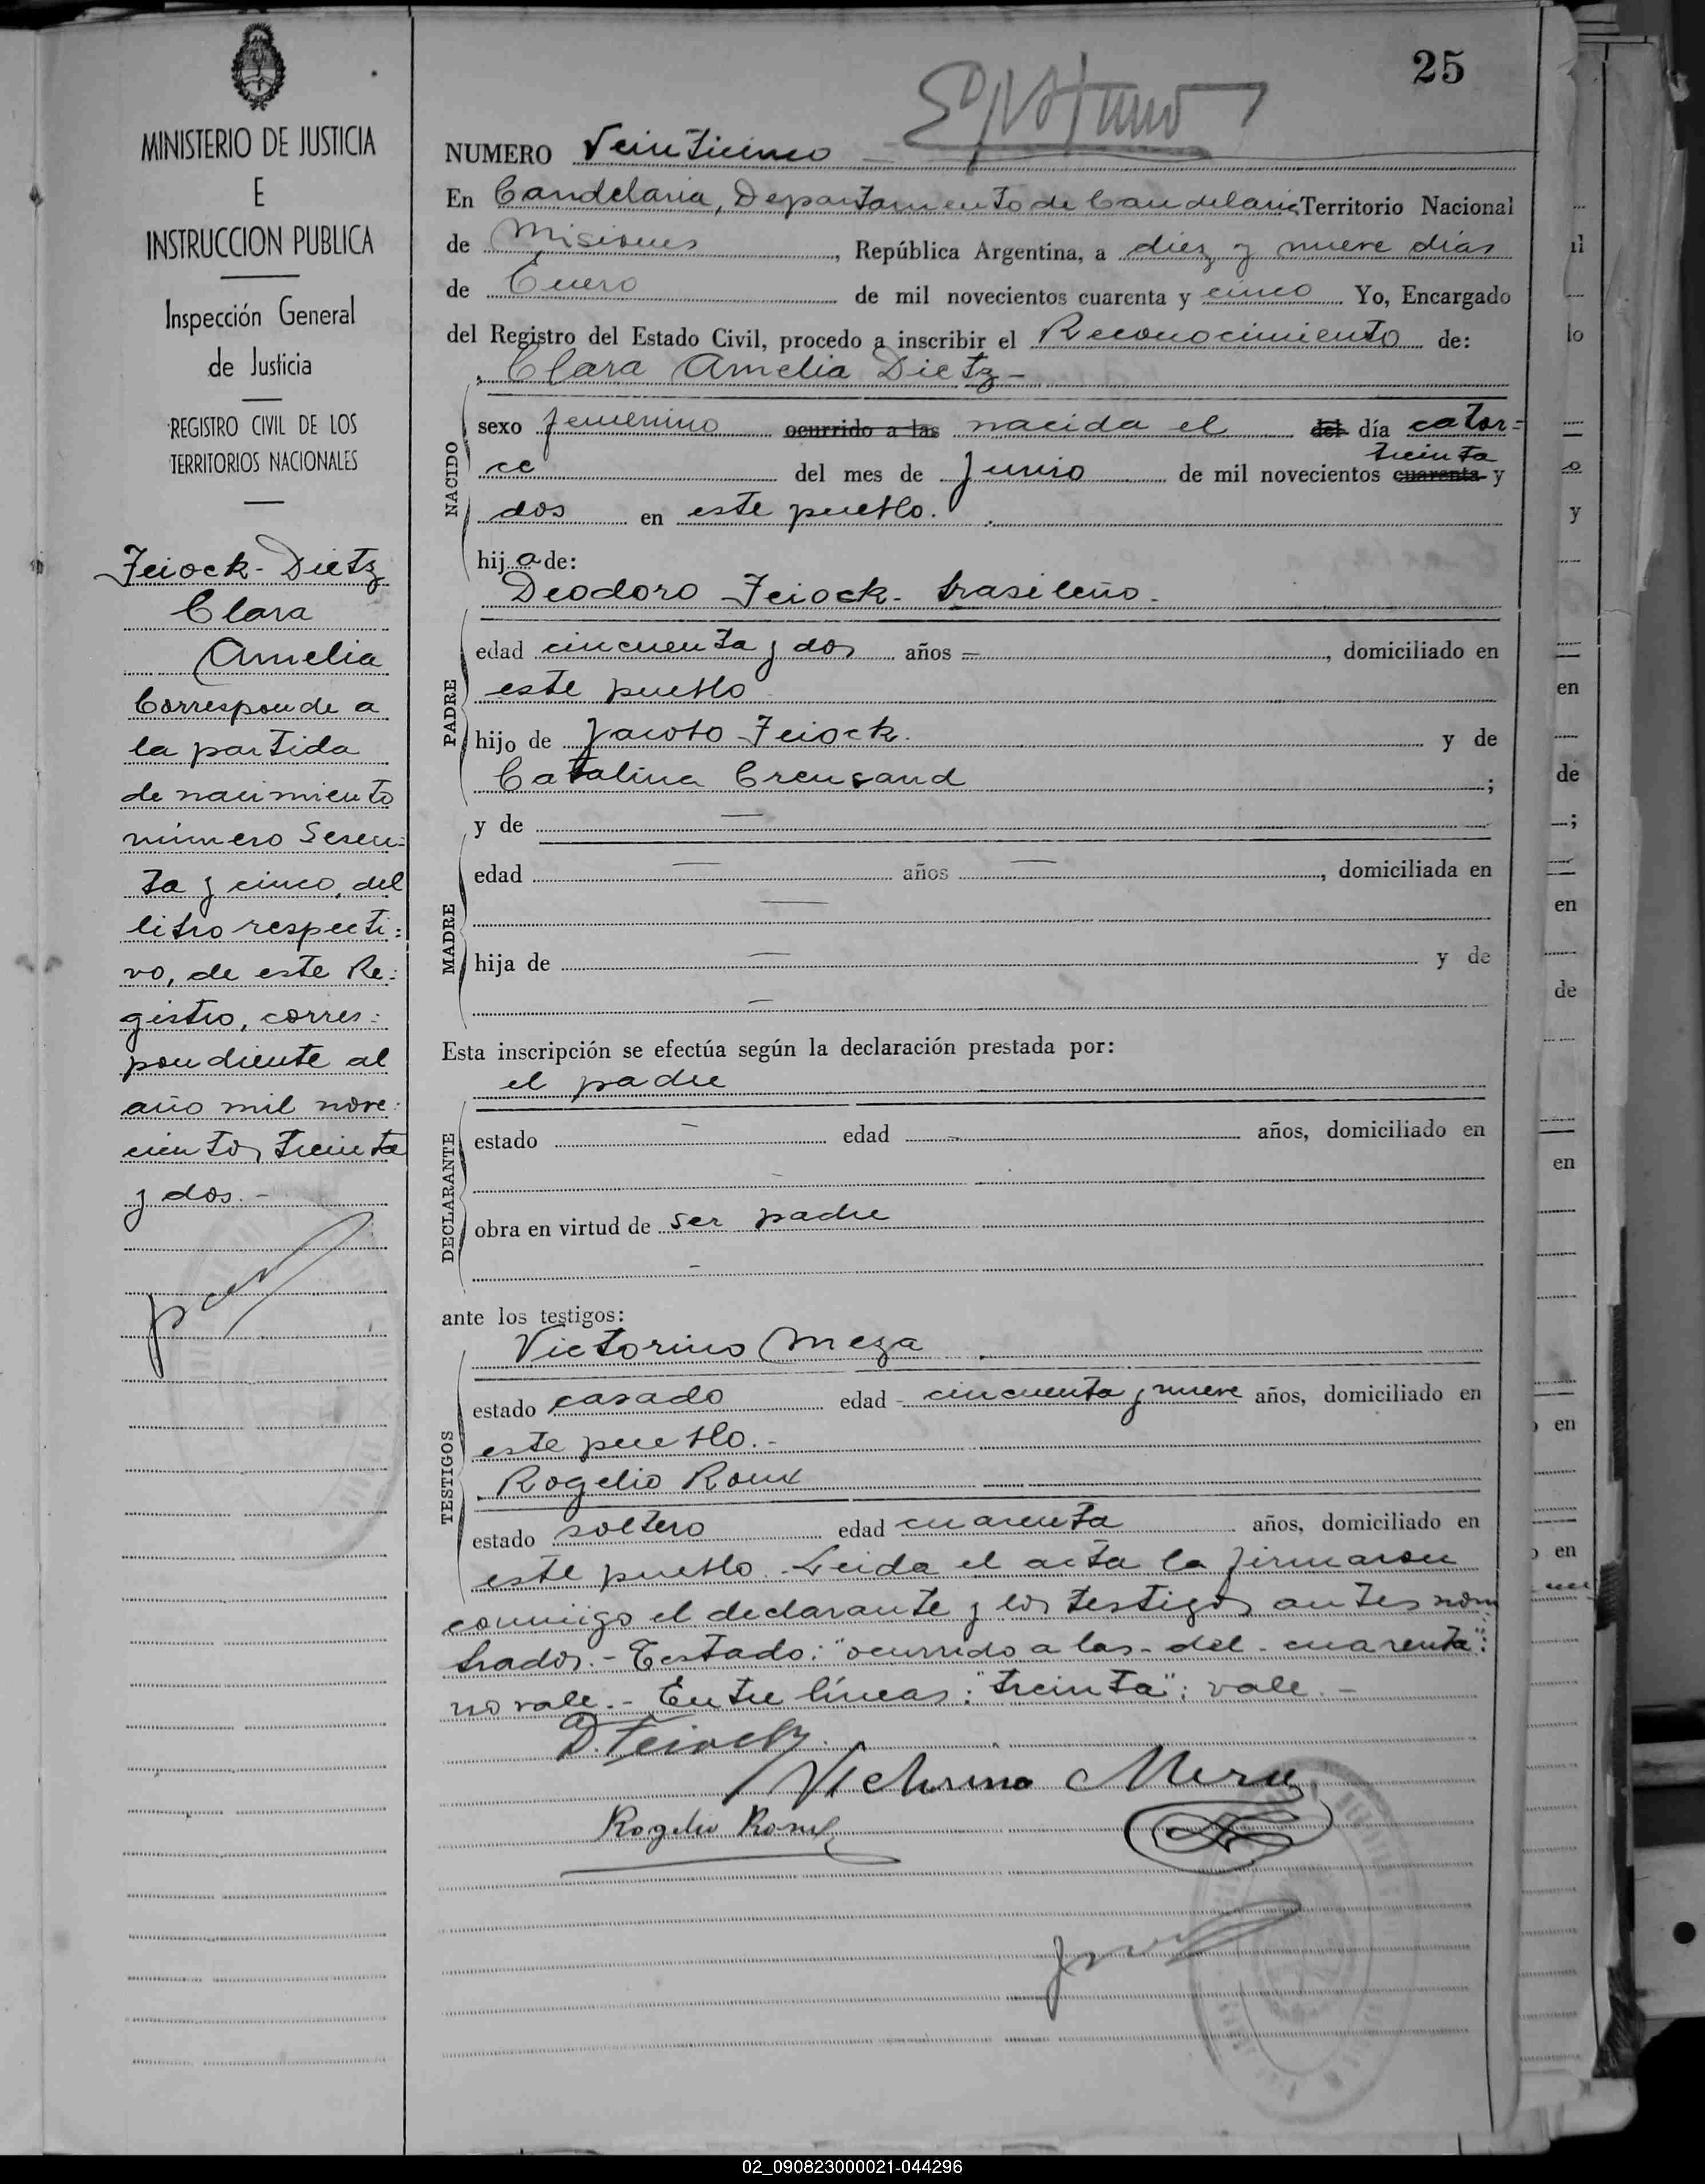 25
MINISTERIO DE JUSTICIA
E
INSTRUCCION PUBLICA
Inspección General
de Justicia
REGISTRO CIVIL DE LOS
TERRITORIOS NACIONALES
Feiock - Dietz
Clara
Amelia
Corresponde a
la partida
de nacimiento
número Sesen=
ta y cinco, del
libro respecti=
vo, de este Re=
gistro, corres=
pondiente al
año mil nove=
cientos treinta
y dos.-
NUMERO Veinticinco
En Candelaria, Departamento de Candelaria Territorio Nacional
de Misiones, República Argentina, a diez y nueve días
de Enero de mil novecientos cuarenta y cinco Yo, Encargado
del Registro del Estado Civil, procedo a inscribir el Reconocimiento de:
Clara Amelia Dietz-
NACIDO
sexo femenino ocurrido a las nacida el del día cator=
treinta
ce del mes de Junio de mil novecientos cuarenta y
dos en este pueblo.
hij a de:
Deodoro Feiock - brasileño -
PADRE
edad cincuenta y dos años =, domiciliado en
este pueblo
hijo de Jacobo Feiock. y de
Catalina ;
y de —
MADRE
edad — años —, domiciliada en
—
hija de — y de
—
Esta inscripción se efectúa según la declaración prestada por:
el padre
DECLARANTE
estado — edad — años, domiciliado en
—
obra en virtud de ser padre
-
ante los testigos:
Victorino Meza
TESTIGOS
estado casado edad - cincuenta y nueve años, domiciliado en
este pueblo.-
Rogelio Roux
estado soltero edad cuarenta años, domiciliado en
este pueblo. - Leida el acta la firmaron
conmigo el declarante y los testigos antes nom
brados. - Testado: "ocurrido a las - del - cuarenta":
no vale. - Entre líneas: "treinta": vale. -
D. Feiock
Victorino Meza
Rogelio Roux
il
lo
o
y
en
de
;
en
de
en
en
en
02_090823000021-044296